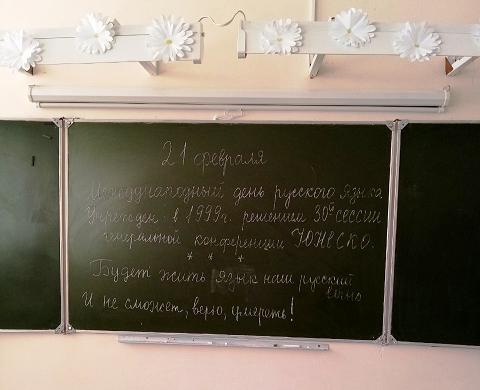 21 февраля
Международный день русского языка.
Учрежден в 1999г. решением 30й сессии
генеральной конференции ЮНЕСКО.
* * *
Будет жить язык наш русский
вечно
И не сможет, верю, умереть!